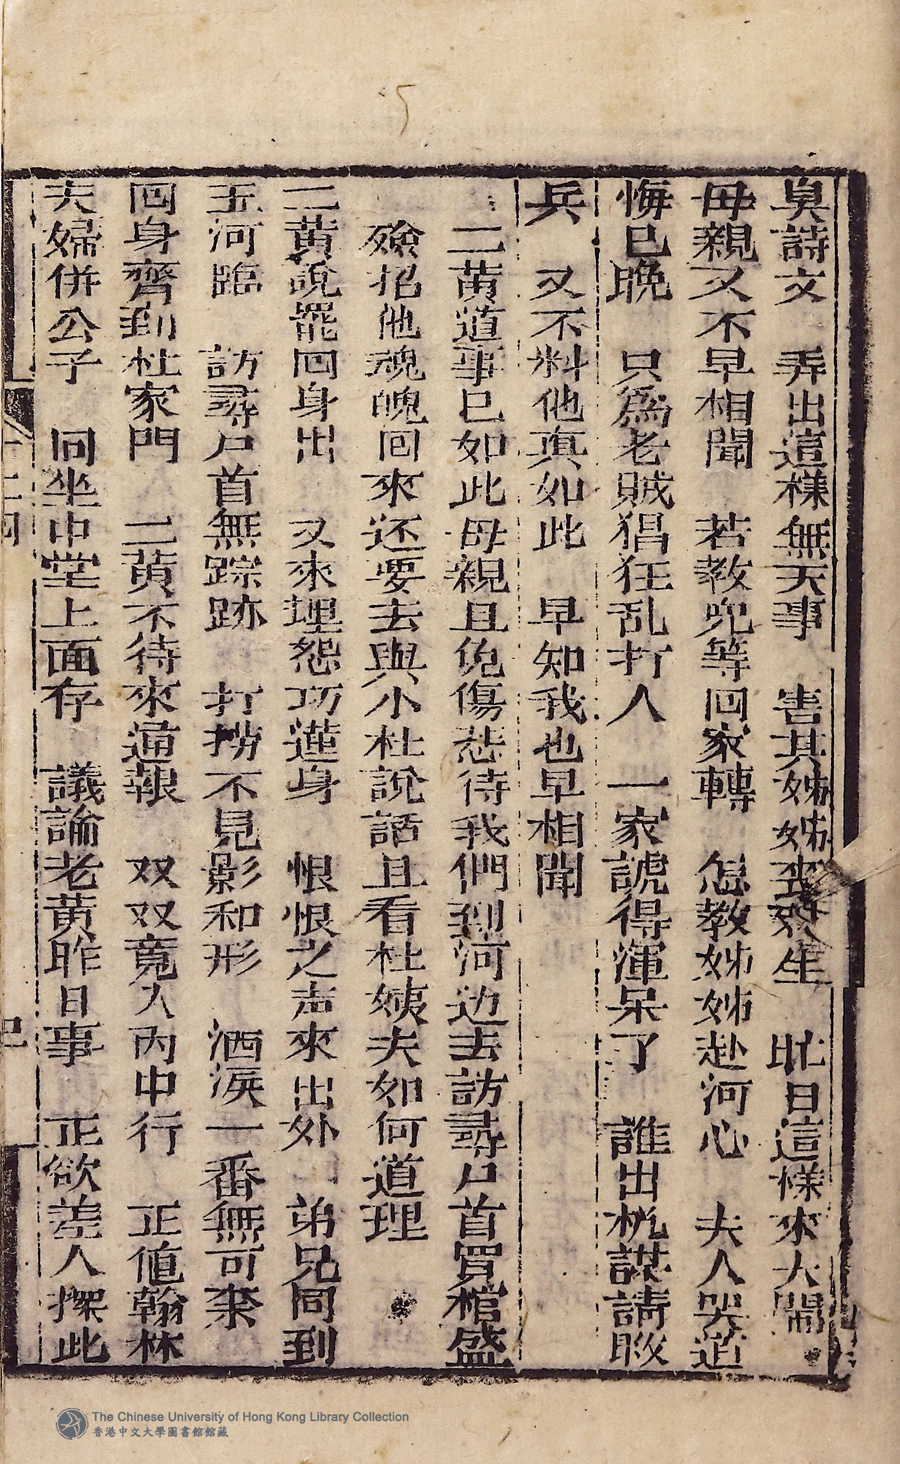 5
莫詩文　弄出這樣無天事　害其姊姊喪殘生　昨日這樣來大鬧
母親又不早相聞　若教兒等回家轉　怎教姊姊赴河心　夫人哭道
悔已晚　只為老賊猖狂乱打人　一家諕得渾呆了　誰出机謀請
兵　又不料他真如此　早知我也早相聞
二黃道事已如此母親且免傷悲待我們到河边去訪尋尸首買棺盛
殮招他魂魄回來还要去與小杜說話且看杜姨夫如何道理
二黃說罷回身出　又來埋怨巧蓮身　恨恨之声來出外　弟兄同到
玉河臨　訪尋尸首無踪跡　打撈不見影和形　洒淚一番無可奈
回身齊到杜家門　二黃不待來通報　双双竟入內中行　正值翰林
夫婦併公子　同坐中堂上面存　議論老黃昨日事　正欲差人探此
The Chinese University of Hong Kong Library Collection
香港中文大學圖書館館藏